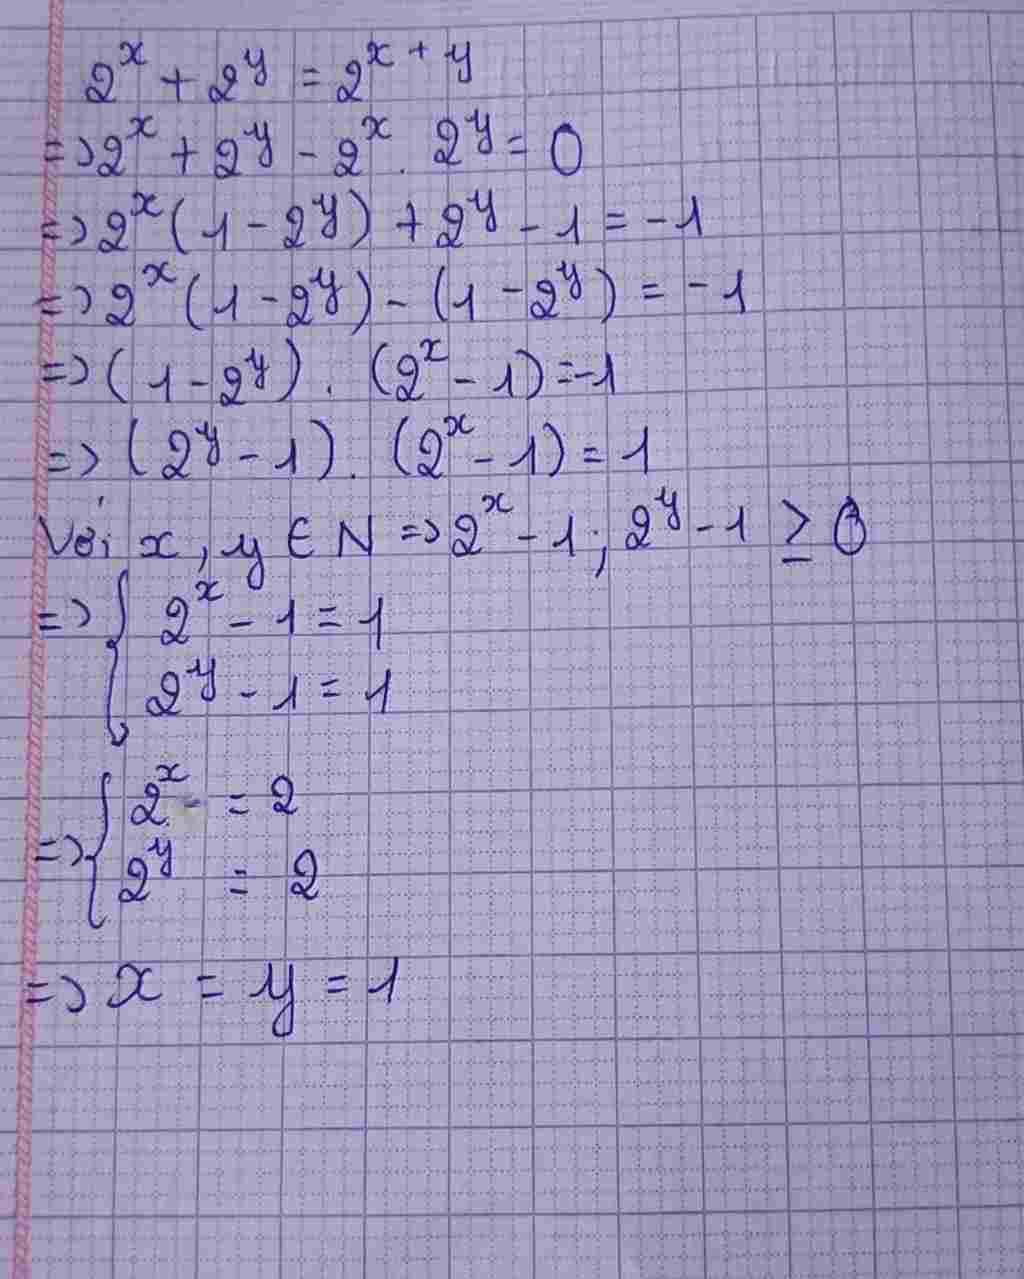 2^x + 2^y = 2^{x + y}
=> 2^x + 2^y - 2^x . 2^y = 0
=> 2^x (1 - 2^y) + 2^y - 1 = -1
=> 2^x (1 - 2^y) - (1 - 2^y) = -1
=> (1 - 2^y) . (2^x - 1) = -1
=> (2^y - 1) . (2^x - 1) = 1
Với x, y ∈ N => 2^x - 1 ; 2^y - 1 ≥ 0
=> { 2^x - 1 = 1
2^y - 1 = 1
=> { 2^x = 2
2^y = 2
=> x = y = 1